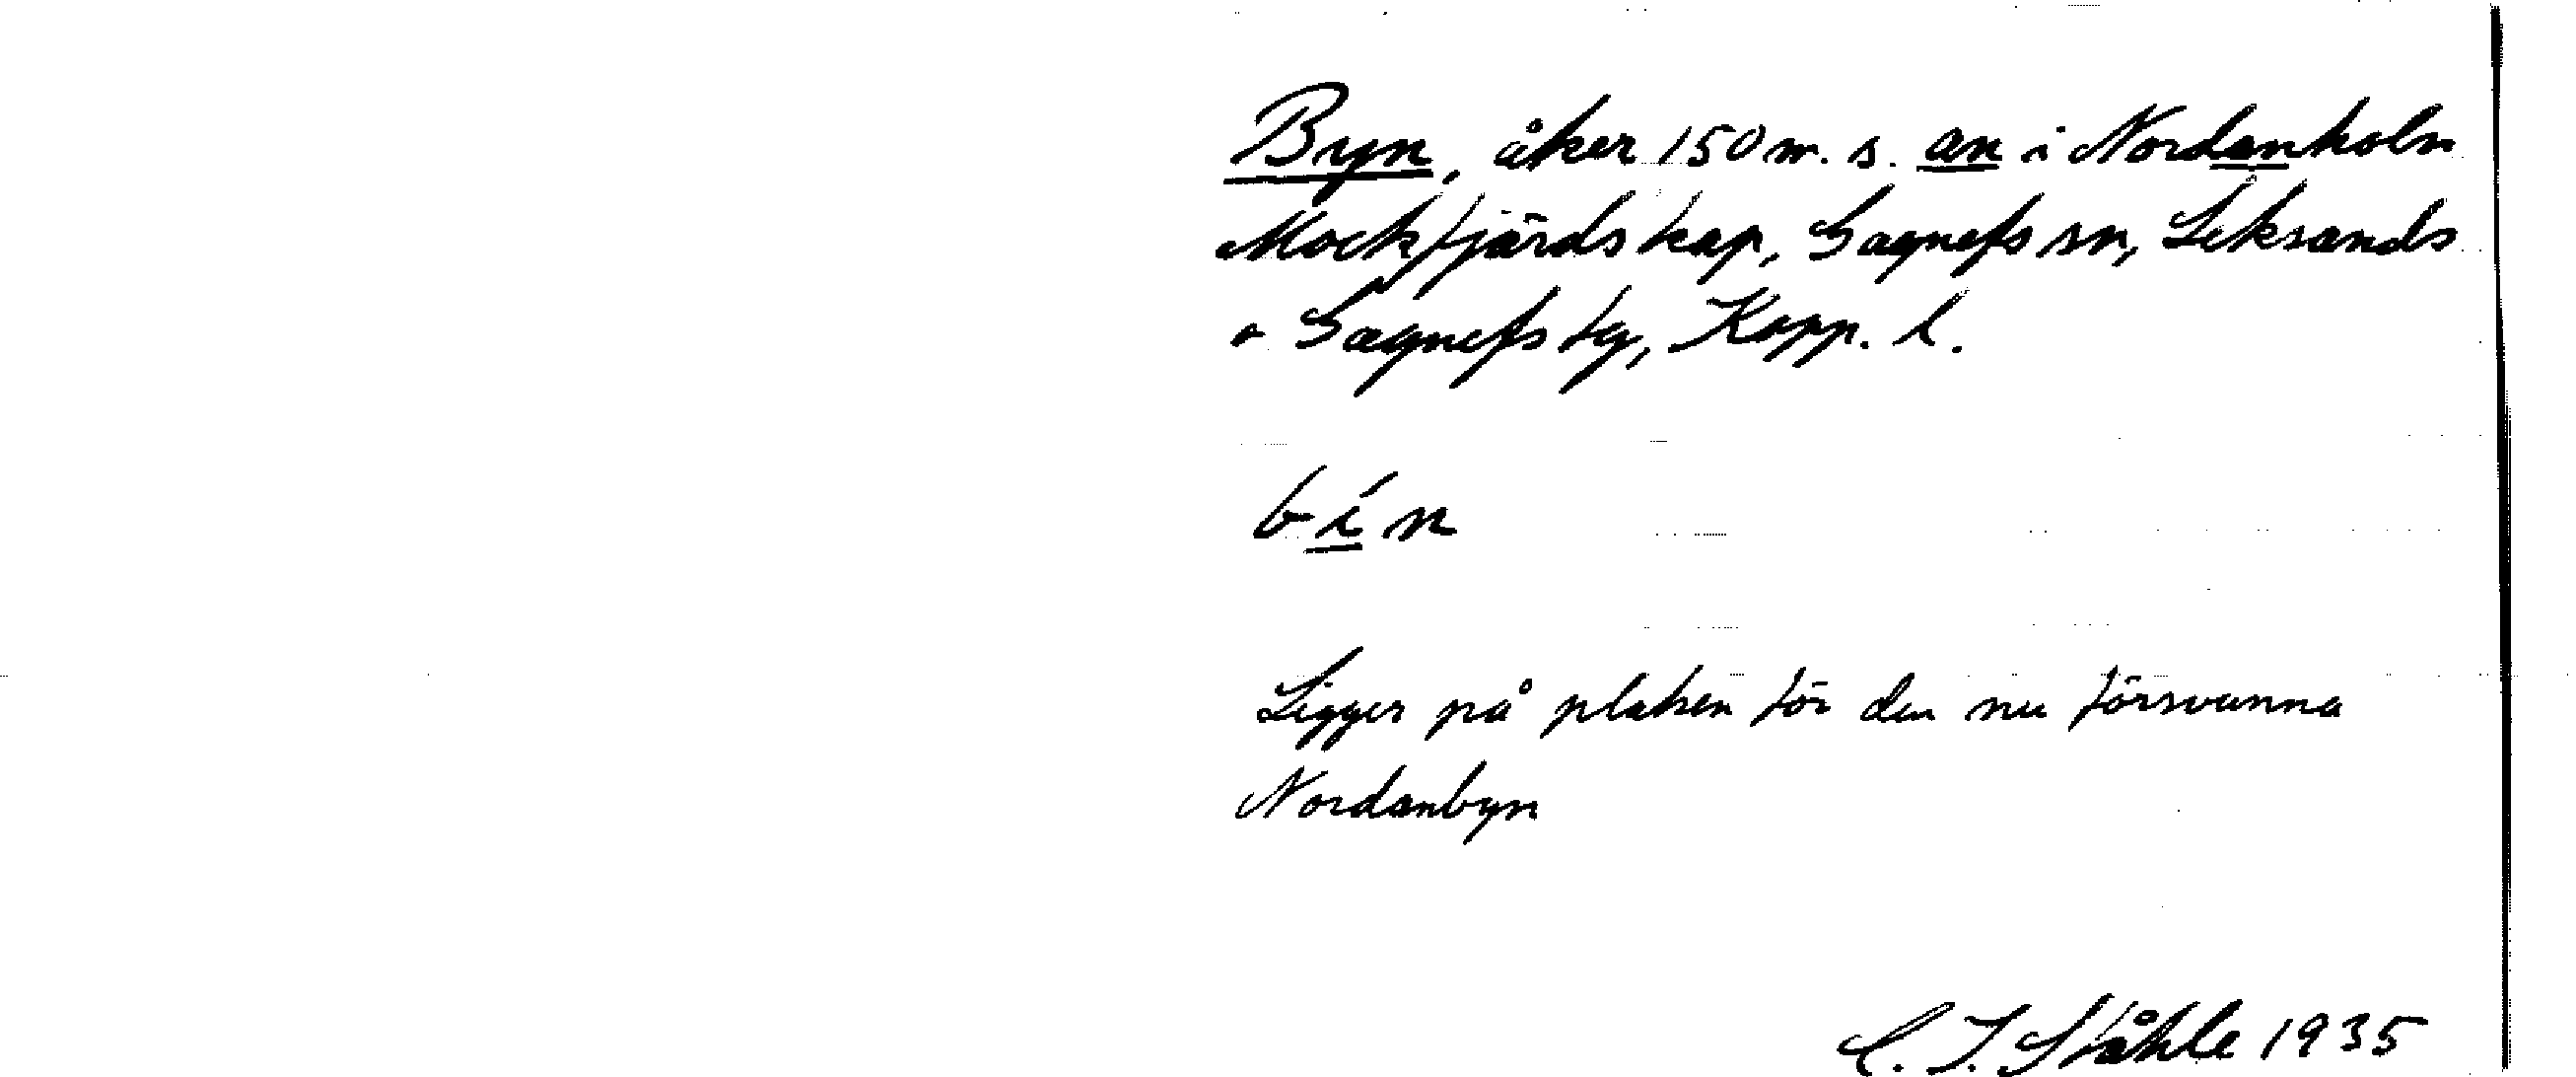 Byn, åker 150 m. s. an i Nordanholn
Mockfjärds kap, Gagnefs sn, Leksands
o Gagnefs tg, Kopp. l.
bín
Ligger på platsen för den nu försvunna
Nordanbyn
C. I. Ståhle 1935